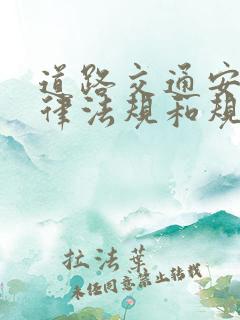 道路交通安
律法规和规
扗法葉
未经同意禁止转载